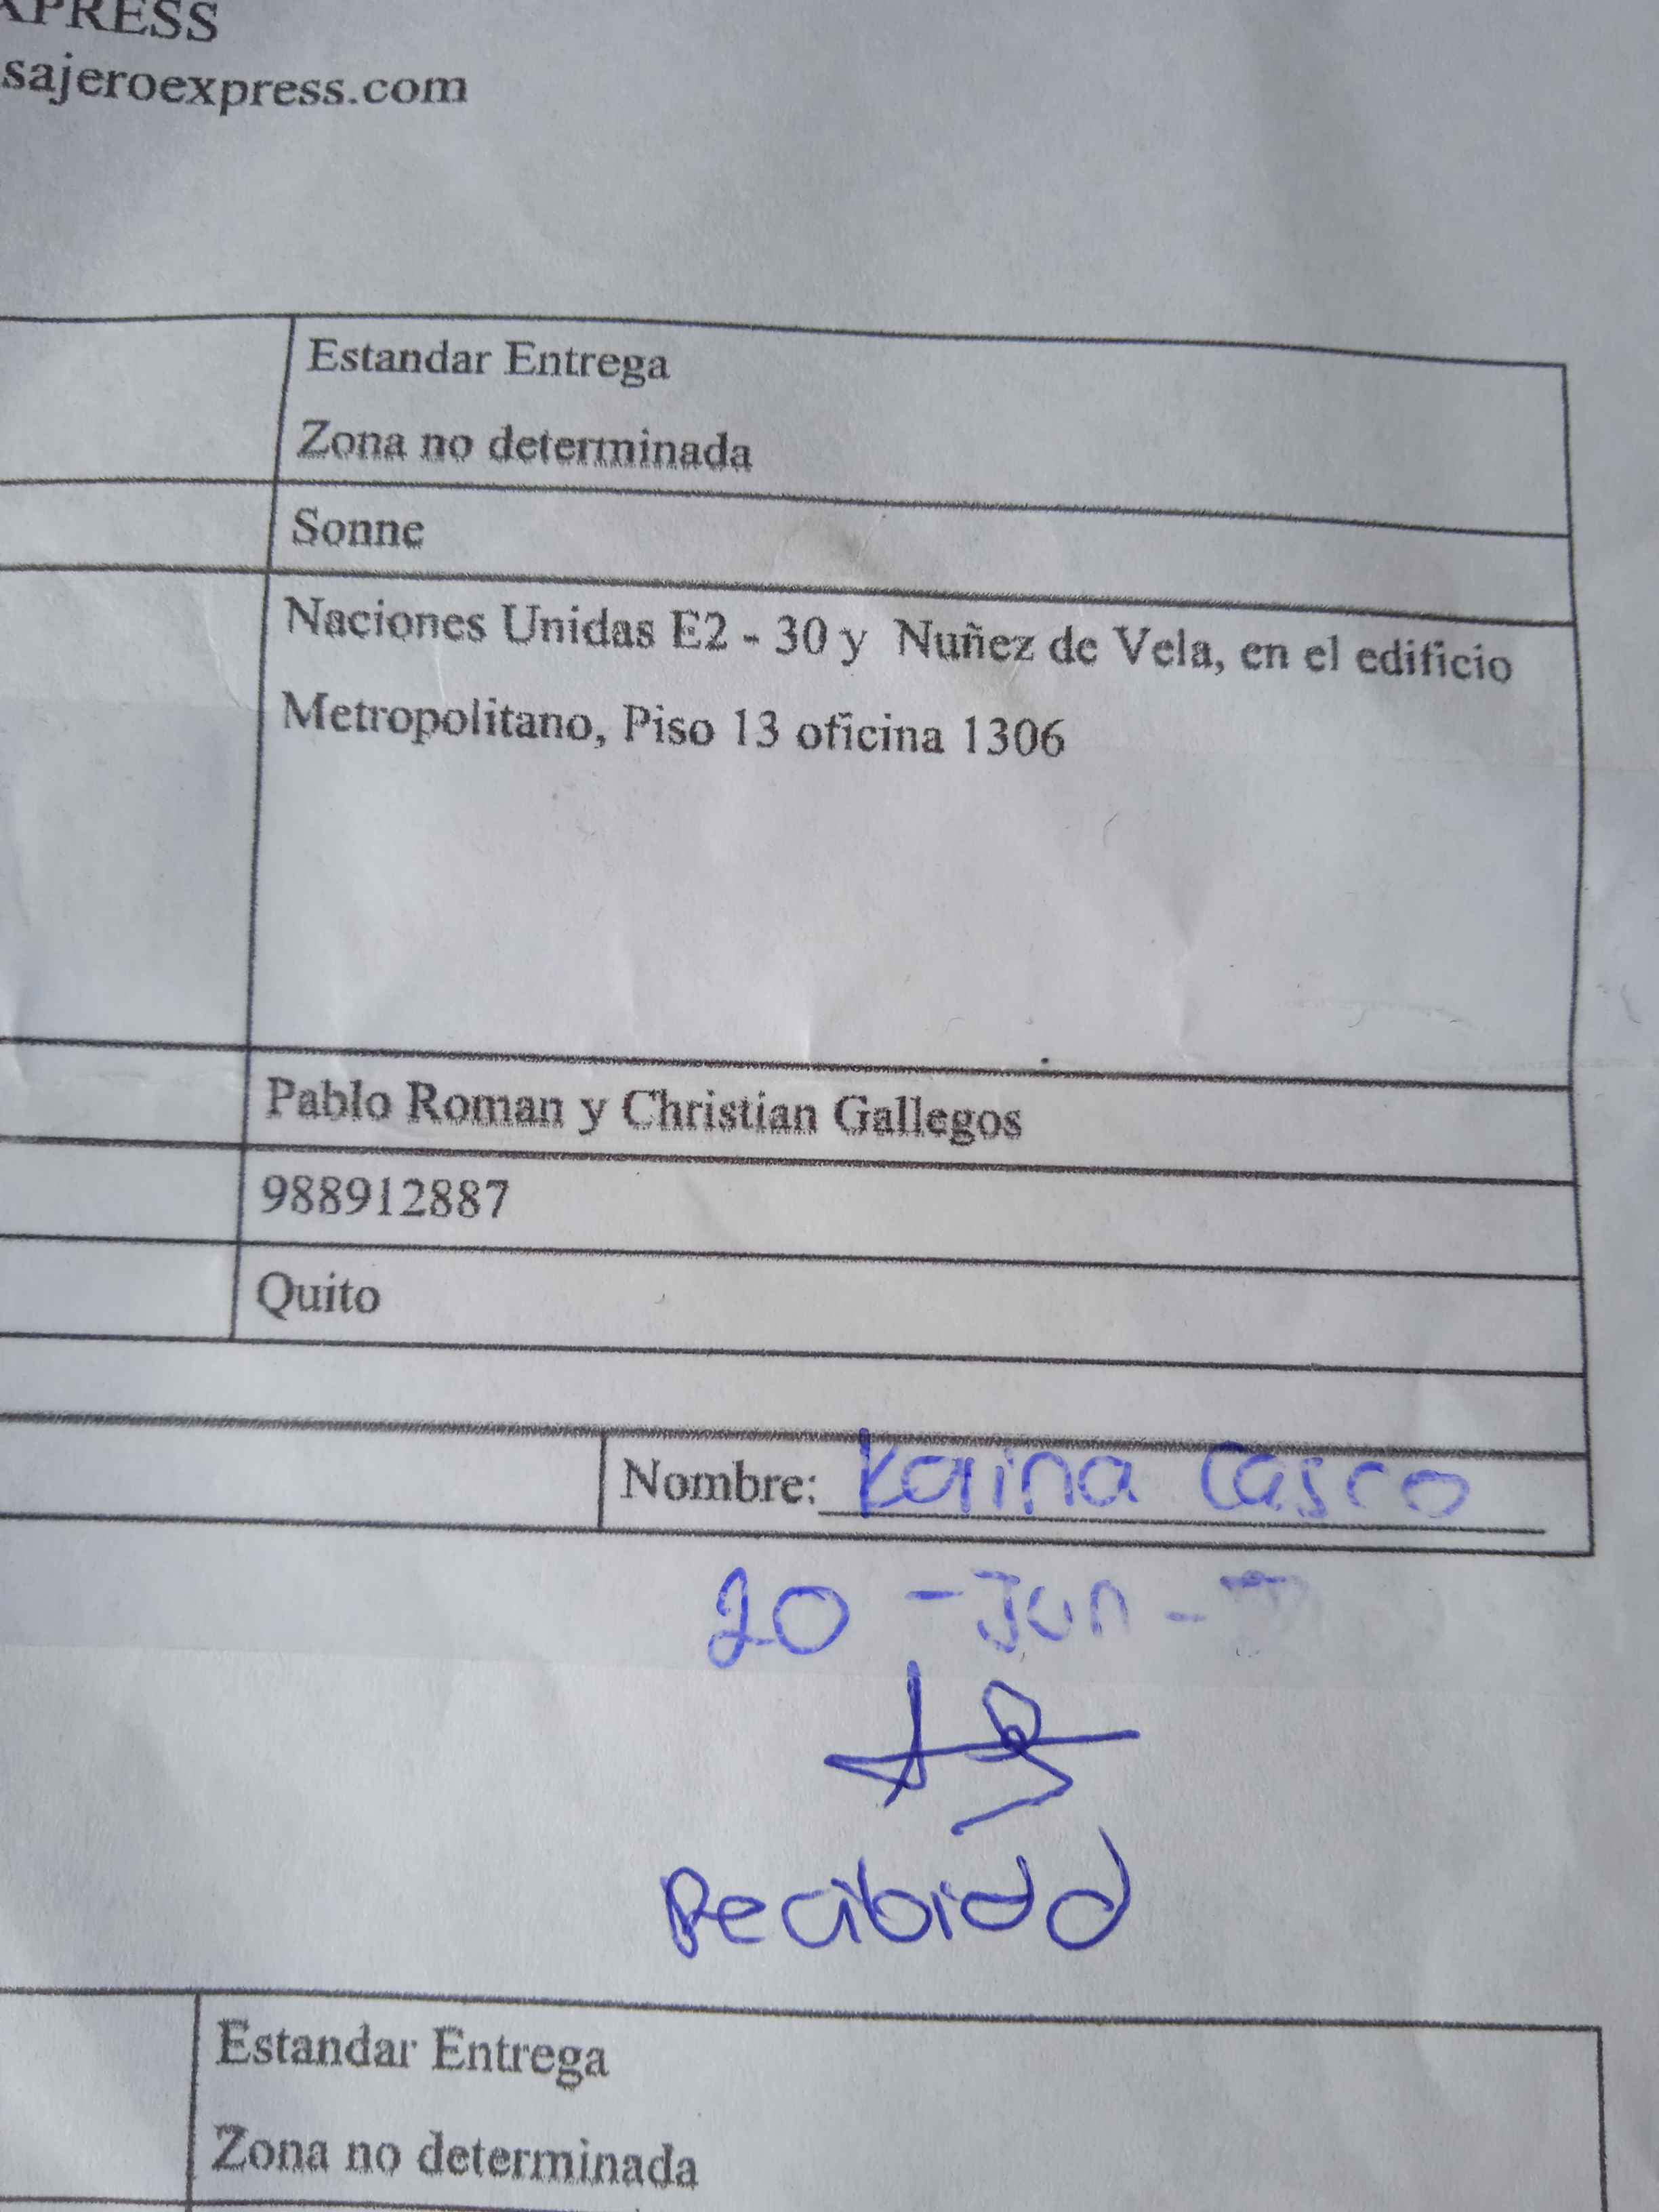 XPRESS
sajeroexpress.com
Estandar Entrega
Zona no determinada
Sonne
Naciones Unidas E2 - 30 y Nuñez de Vela, en el edificio
Metropolitano, Piso 13 oficina 1306
Pablo Roman y Christian Gallegos
988912887
Quito
Nombre: Karina Casco
20 - Jun -
Recibido
Estandar Entrega
Zona no determinada